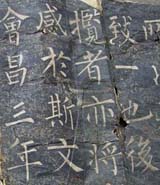 致一也後
攬者亦將
感於斯文
會昌三年